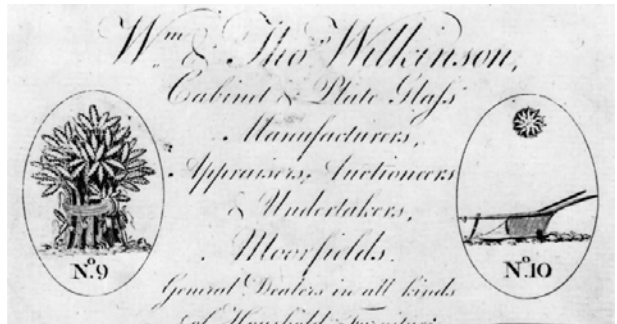 Wm. & Thos. Wilkinson,
Cabinet & Plate Glass
Manufacturers,
Appraisers, Auctioneers
& Undertakers,
Moorfields.
General Dealers in all kinds
of Household Furniture
No. 9
No. 10